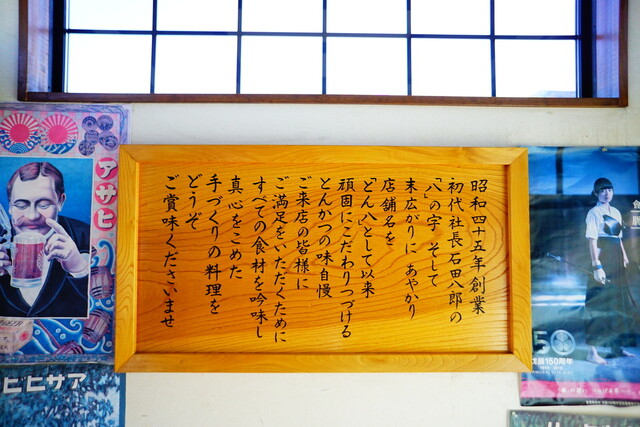 昭和四十五年創業
初代社長石田八郎の
「八」の字 そして
末広がりに あやかり
店舗名を
「どん八」として以来
頑固にこだわりつづける
とんかつの味自慢
ご来店の皆様に
ご満足をいただくために
すべての食材を吟味し
真心をこめた
手づくりの料理を
どうぞ
ご賞味くださいませ
アサヒ
アサヒビ
150周年